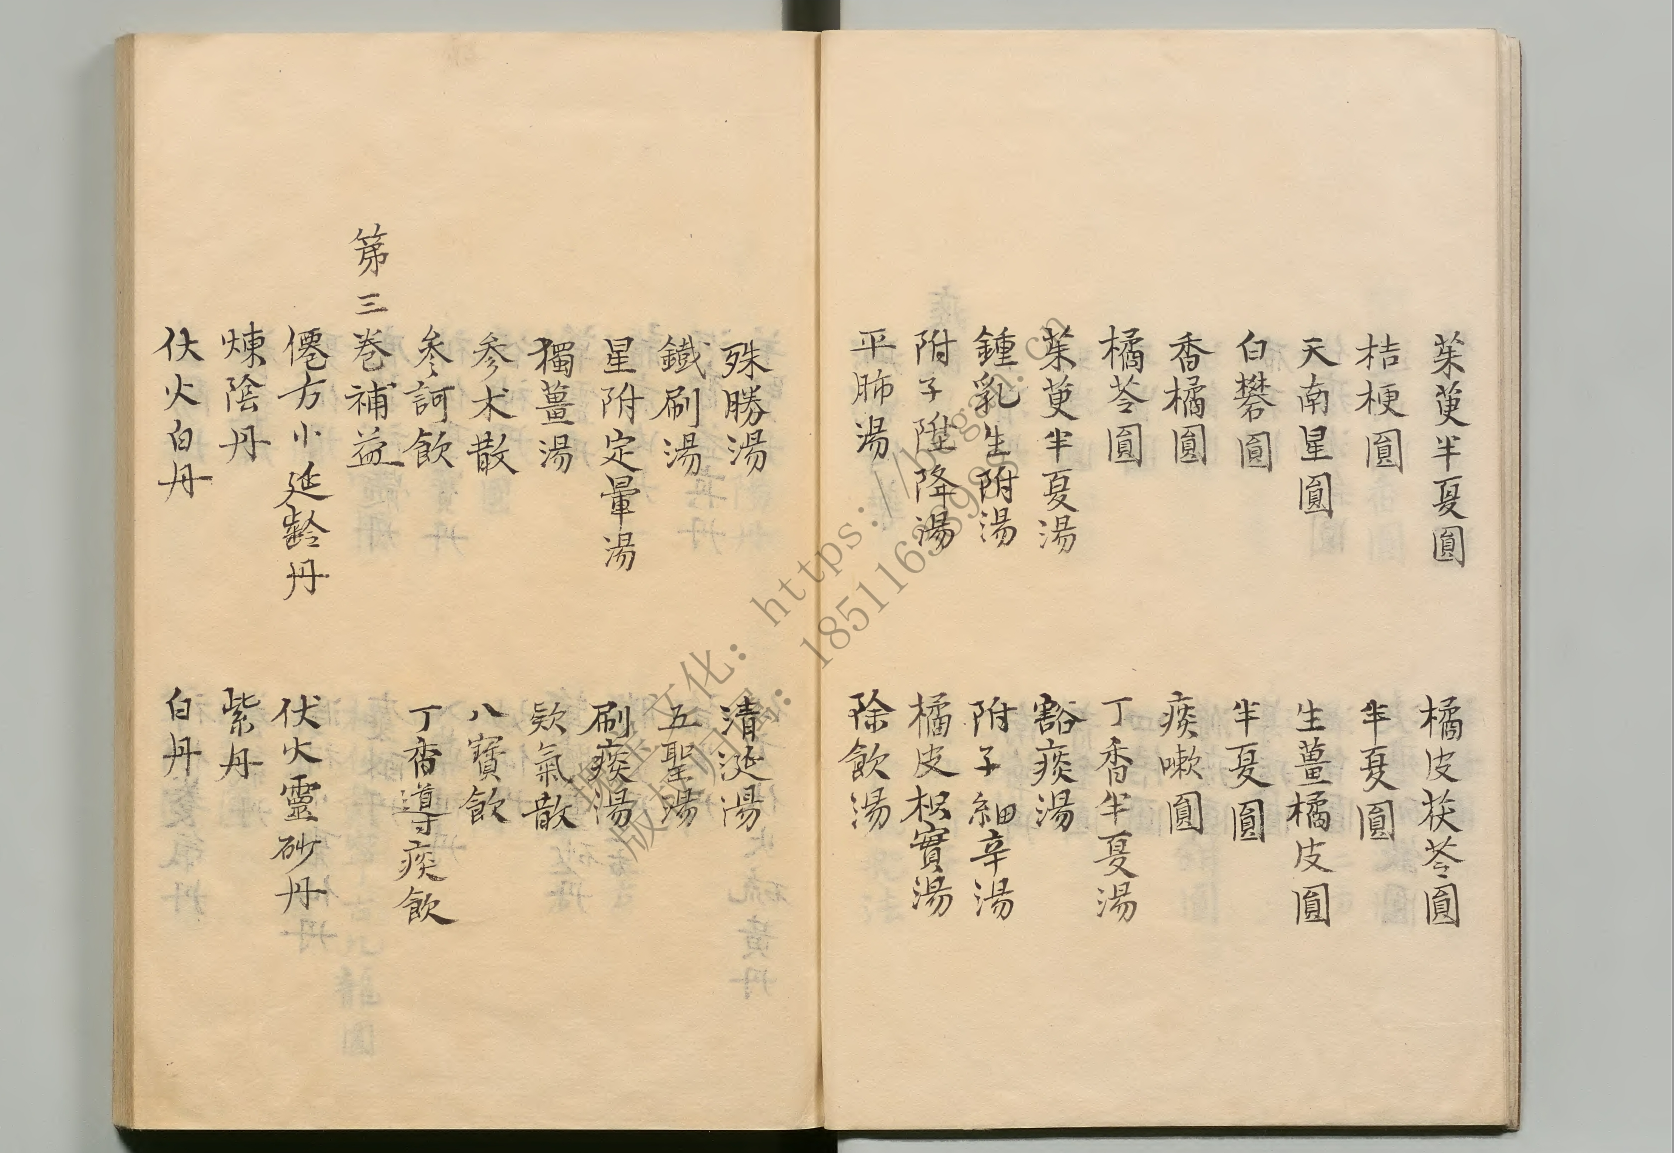 茱萸半夏圓　橘皮茯苓圓
桔梗圓　半夏圓
天南星圓　生薑橘皮圓
白礬圓　半夏圓
香橘圓　痰嗽圓
橘苓圓　丁香半夏湯
茱萸半夏湯　豁痰湯
鍾乳生附湯　附子細辛湯
附子陞降湯　橘皮枳實湯
平肺湯　除飲湯
殊勝湯　清涎湯
鐵刷湯　五聖湯
星附定暈湯　刷痰湯
獨薑湯　欵氣散
参朮散　八寶飲
参訶飲　丁香導痰飲
第三卷補益
僊方小延齡丹　伏火靈砂丹
煉陰丹　紫丹
伏火白丹　白丹
https://